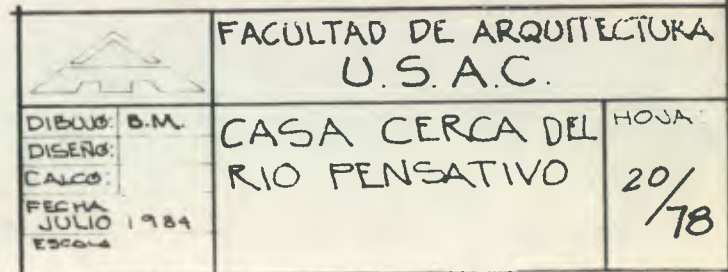 FACULTAD DE ARQUITECTURA
U.S.A.C.
DIBUJO: B.M.
DISEÑO:
CALCO:
FECHA
JULIO 1984
ESCALA
CASA CERCA DEL
RIO PENSATIVO
HOJA:
20/78